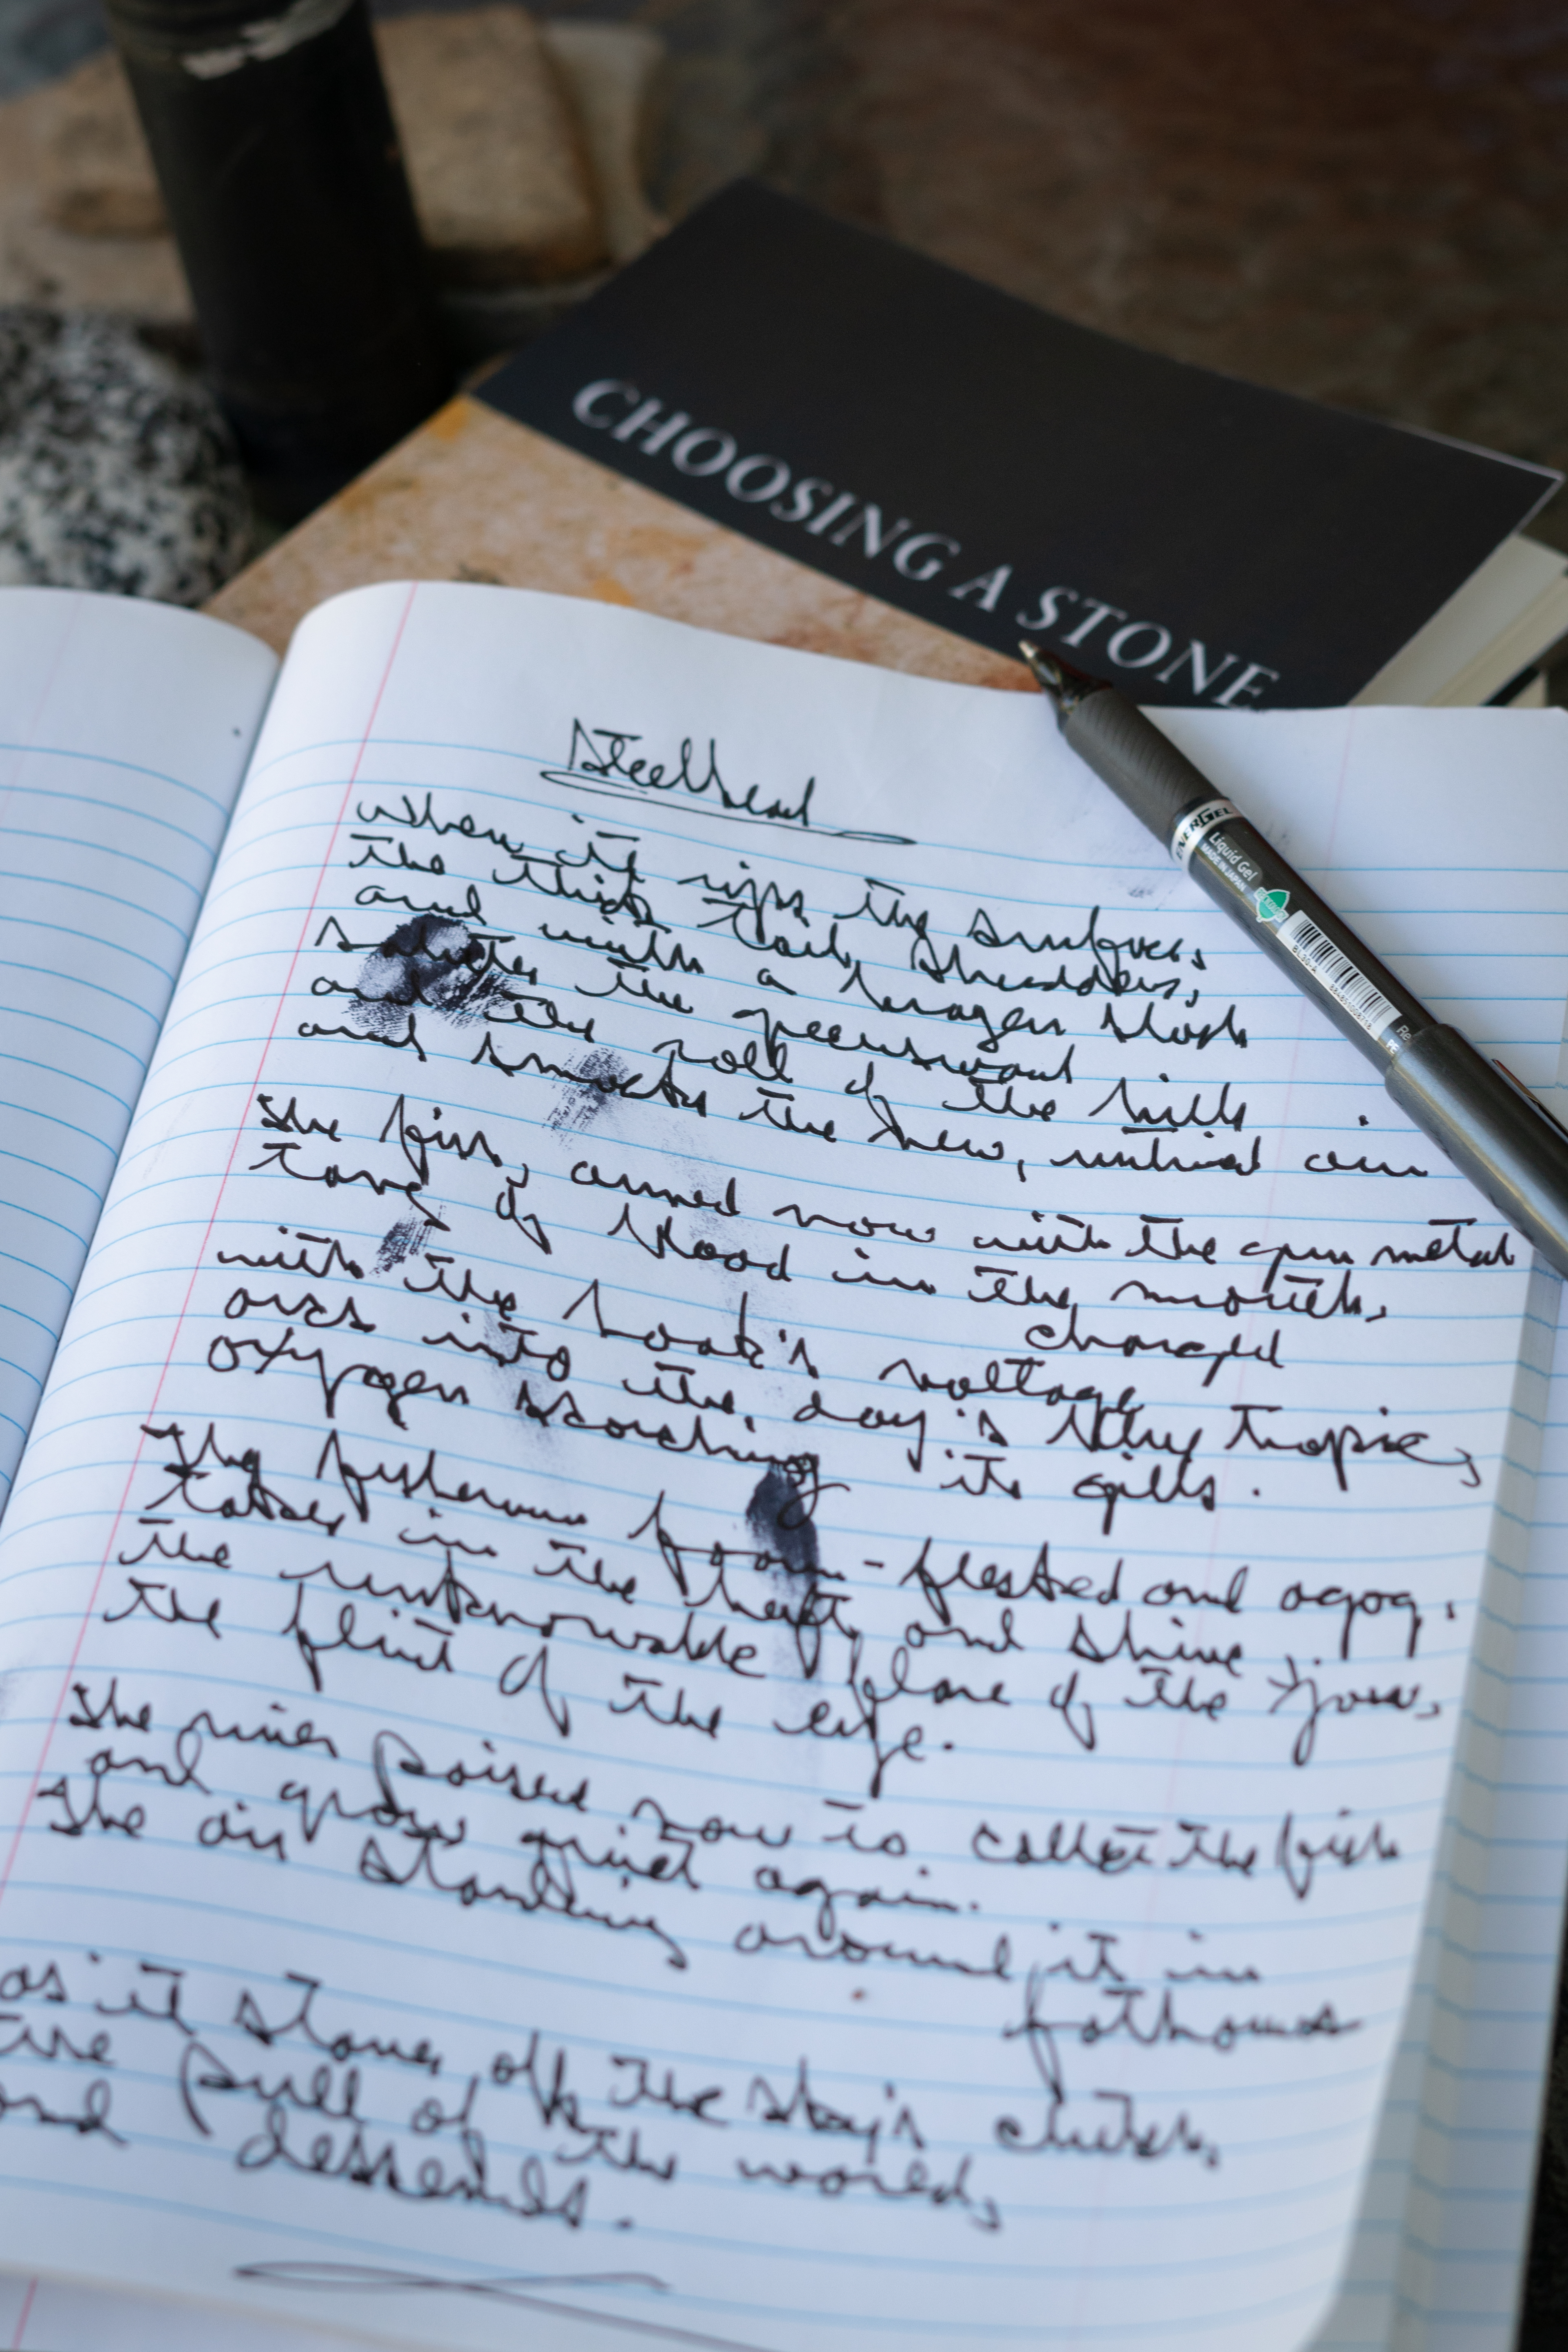 CHOOSING A STONE
Steelhead
When it rips the surface,
the thick tail shudders,
and with a brazen slash
salutes the greensward
and the roll of the hills
and smacks the new, untried air
The fish, armed now with the gun metal
tang of blood in the mouth,
charged
with the hook's voltage
arcs into the day's blue tropic,
oxygen scorching its gills.
The fisherman foam-flecked and agog,
takes in the heft, and shine,
the unknowable plane of the jaw,
the flint of the eye.
The river poised now to collect the fish
and grow quiet again.
The air standing around it in
fathoms
as it staves off the sky's clutch,
the pull of the world,
and descends.
ENERGEL
Liquid Gel
MADE IN JAPAN
BL30-A